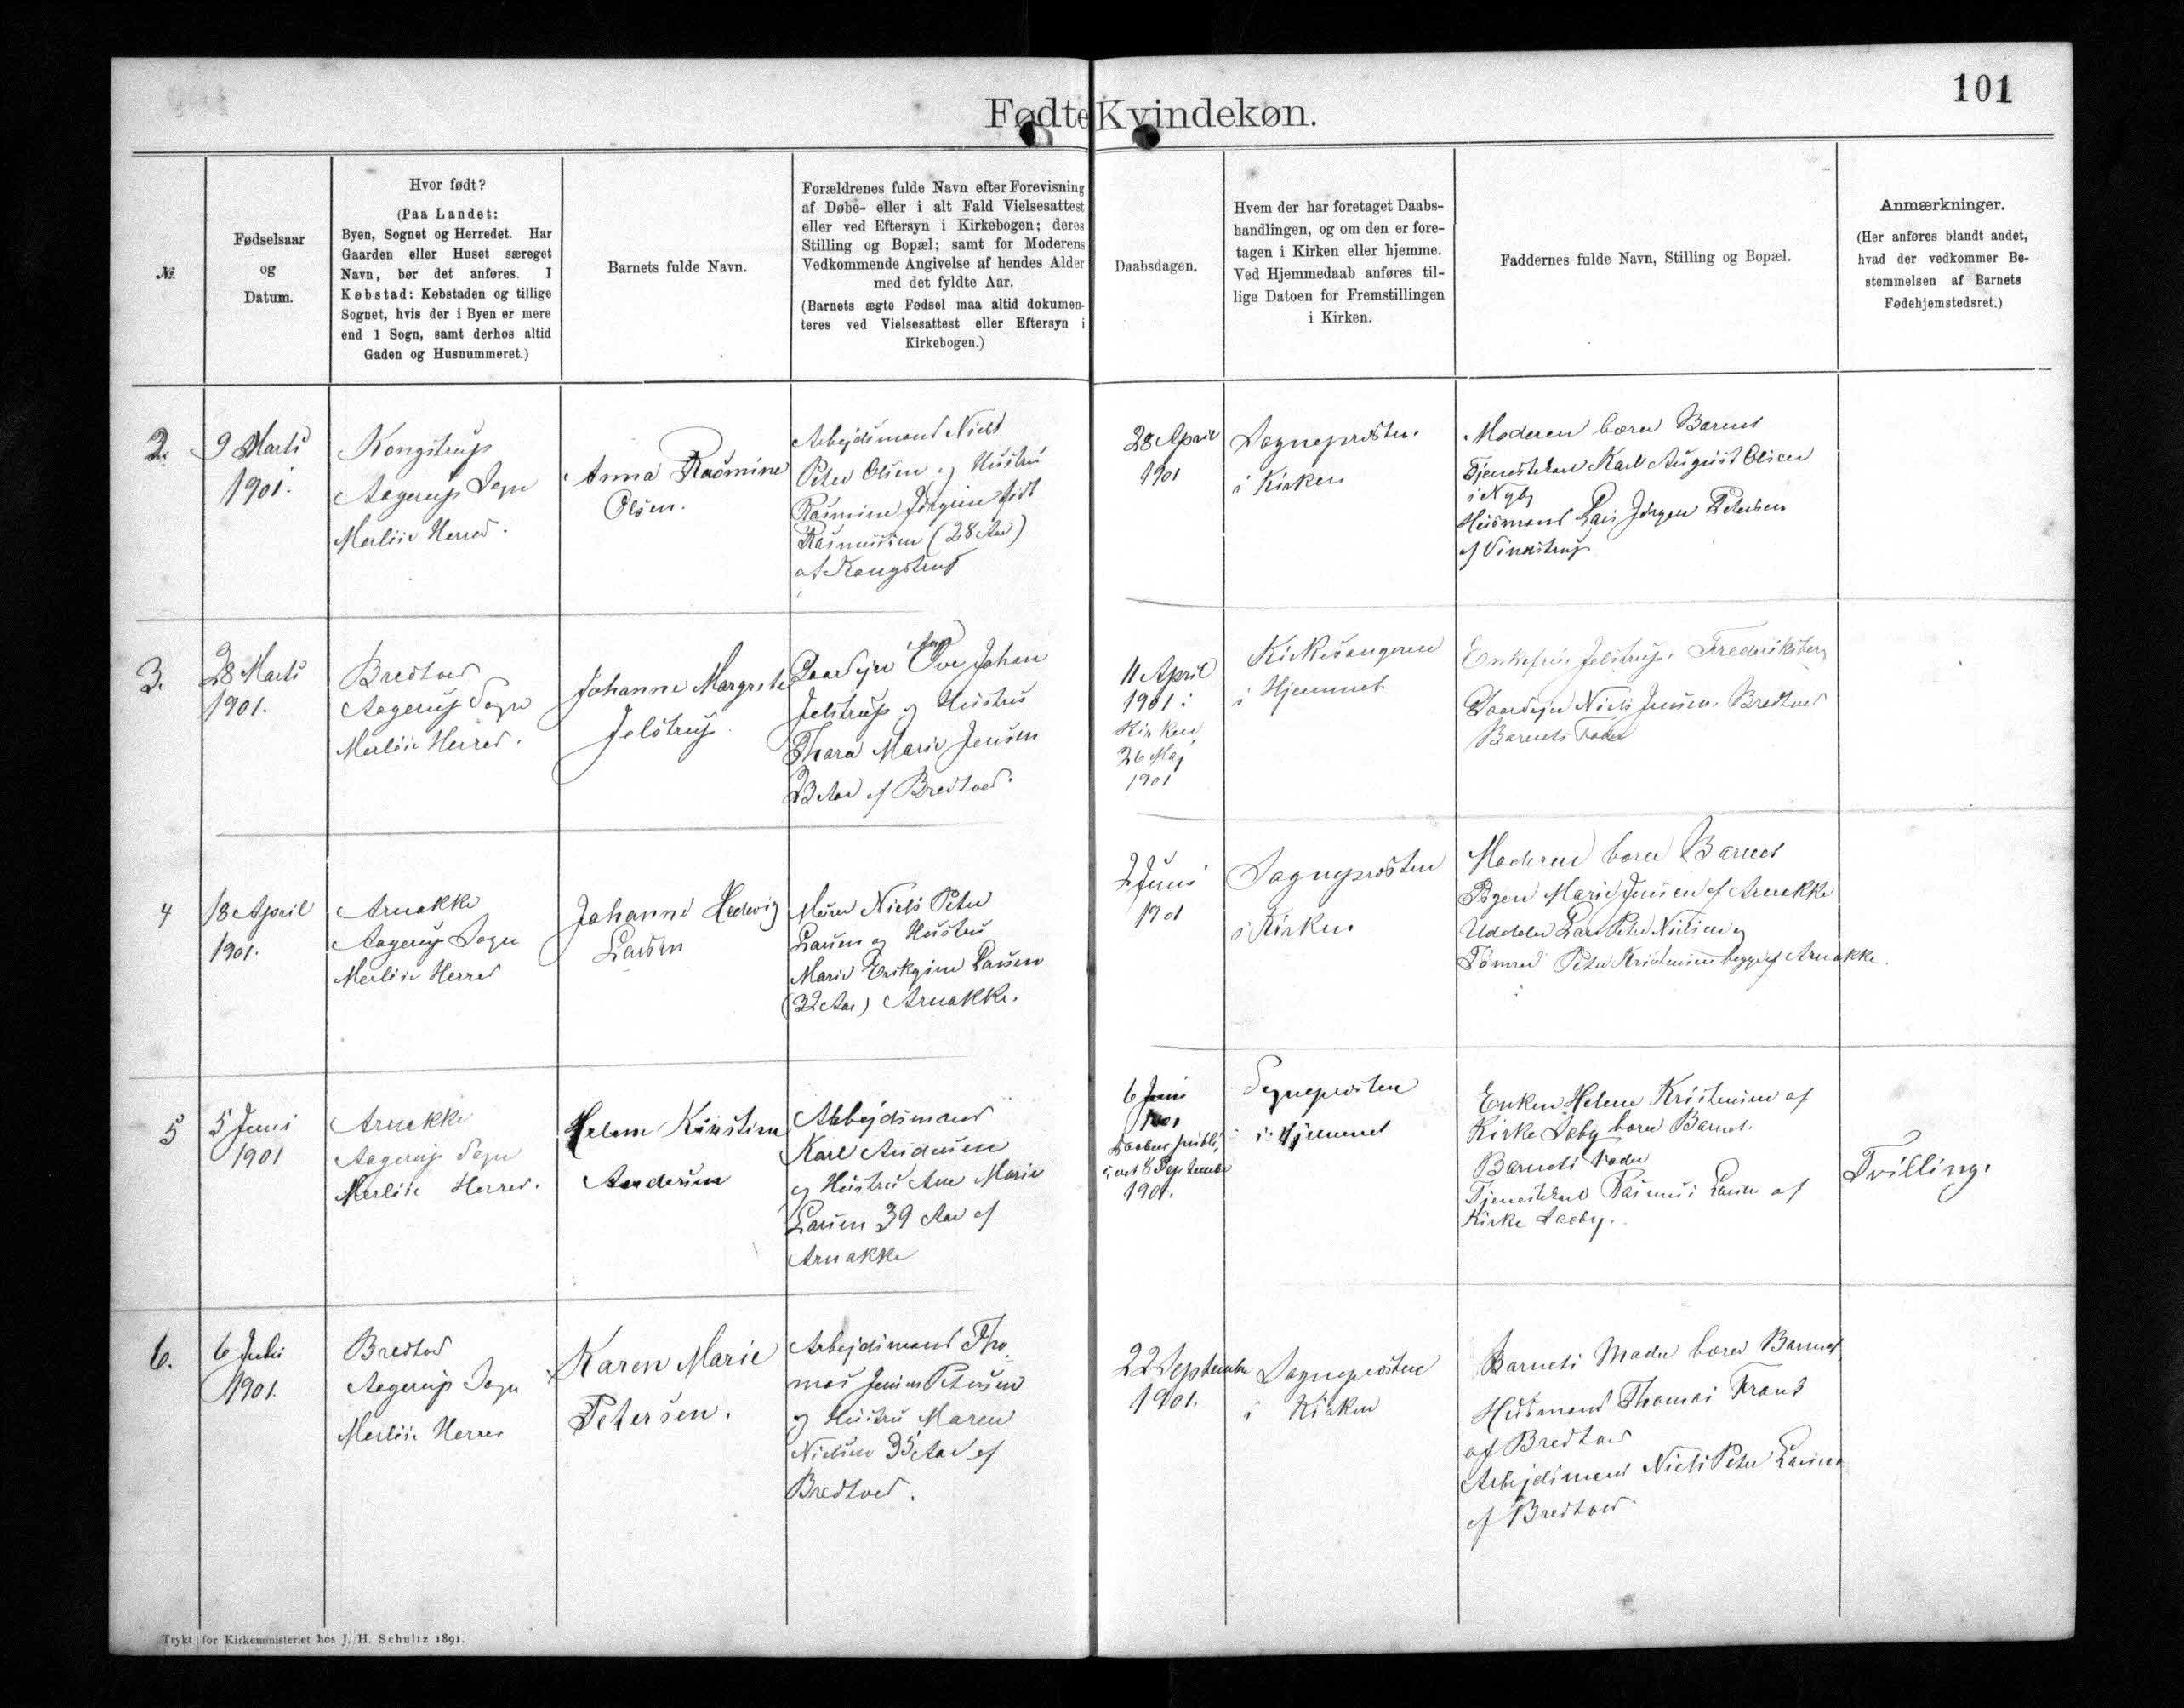 101
Fødte Kvindekøn.
№
Fødselsaar
og
Datum.
Hvor født?
(Paa Landet:
Byen, Sognet og Herredet. Har
Gaarden eller Huset særeget
Navn, bør det anføres. I
Købstad: Købstaden og tillige
Sognet, hvis der i Byen er mere
end 1 Sogn, samt derhos altid
Gaden og Husnummeret.)
Barnets fulde Navn.
Forældrenes fulde Navn efter Forevisning
af Døbe- eller i alt Fald Vielsesattest
eller ved Eftersyn i Kirkebogen; deres
Stilling og Bopæl; samt for Moderens
Vedkommende Angivelse af hendes Alder
med det fyldte Aar.
(Barnets ægte Fødsel maa altid dokumen-
teres ved Vielsesattest eller Eftersyn i
Kirkebogen.)
Daabsdagen.
Hvem der har foretaget Daabs-
handlingen, og om den er fore-
tagen i Kirken eller hjemme.
Ved Hjemmedaab anføres til-
lige Datoen for Fremstillingen
i Kirken.
Faddernes fulde Navn, Stilling og Bopæl.
Anmærkninger.
(Her anføres blandt andet,
hvad der vedkommer Be-
stemmelsen af Barnets
Fødehjemstedsret.)
2.
9 Marts
1901.
Kongstrup
Aagerup Sogn
Merløse Herred.
Anna Rasmine
Olsen.
Arbejdsmand Niels
Peter Olsen og Hustru
Rasmine Jørgine født
Rasmussen (28 Aar)
af Kongstrup
28 April
1901
Sognepræsten
i Kirken
Moderen bærer Barnet
Tjenestekarl Karl August Olsen
i Nyby
Husmand Lars Jørgen Petersen
af Vindstrup
3.
28 Marts
1901.
Bredtved
Aagerup Sogn
Merløse Herred.
Johanne Margrete
Jelstrup.
Gaardejer Ove Johan
Jelstrup og Hustru
Thora Marie Jensen
23 Aar af Bredtved.
11 April
1901:
Kirken
26 Maj
1901
Kirkesangeren
i Hjemmet.
Enkefru Jelstrup, Frederiksberg
Gaardejer Niels Jensen, Bredtved
Barnets Fader
4
18 April
1901.
Arnakke
Aagerup Sogn
Merløse Herred
Johanne Hedevig
Larsen
Murer Niels Peter
Larsen og Hustru
Marie Larsen
(32 Aar) Arnakke.
2 Juni
1901
Sognepræsten
i Kirken
Moderen bærer Barnet
Pigen Marie Jensen af Arnakke
Lars Peter Nielsen og
Tømrer Peter Kristensen begge af Arnakke.
5
5 Juni
1901
Arnakke
Aagerup Sogn
Merløse Herred.
Helene Kirstine
Andersen
Arbejdsmand
Karl Andersen
og Hustru Ane Marie
Larsen 39 Aar af
Arnakke
6 Juni
1901
Daaben publi.
8 September
1901.
Sognepræsten
i Hjemmet
Enken Helene Kristensen af
Kirke Saaby bærer Barnet.
Barnets Fader
Tjenestekarl Rasmus Larsen af
Kirke Saaby.
Tvilling.
6.
6 Juli
1901.
Bredtved
Aagerup Sogn
Merløse Herred
Karen Marie
Petersen.
Arbejdsmand Tho-
mas Jensen Petersen
og Hustru Maren
Nielsen 35 Aar af
Bredtved.
22 September
1901.
Sognepræsten
i Kirken
Barnets Moder bærer Barnet
Husmand Thomas Frans
af Bredtved
Arbejdsmand Niels Peter Larsen
af Bredtved.
Trykt for Kirkeministeriet hos J. H. Schultz 1891.